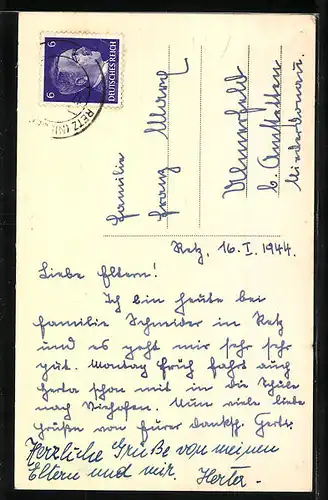 6
6
DEUTSCHES REICH
RETZ
Familie
Franz
Ulmerfeld
b. Amstetten
Niederdonau.
Retz, 16. I. 1944.
Liebe Eltern!
Ich bin heute bei
Familie Schneider in Retz
und es geht mir sehr sehr
gut. Montag früh fahrt auch
Herta schon mit in die Schule
nach Viehofen. Nun viele liebe
Grüße von Eurer dankb. Gertr.
Herzliche Grüße von meinen
Eltern und mir. Herta.